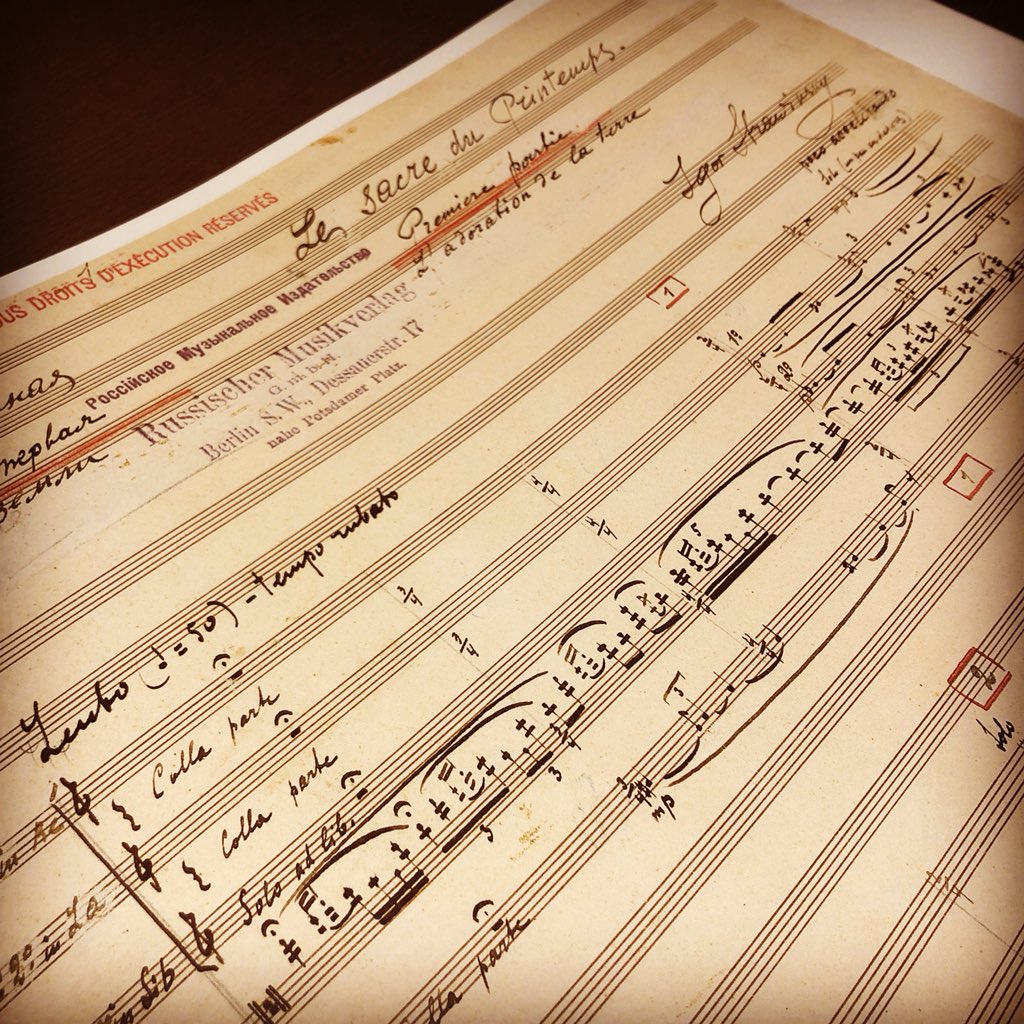 Le Sacre du Printemps.
TOUS DROITS D'EXÉCUTION RÉSERVÉS
Première partie.
L'adoration de la terre
Igor Strawinsky
poco accelerando
Россійское Музыкальное Издательство
Russischer Musikverlag
G.m.b.H
Berlin S.W., Dessauerstr. 17
nahe Potsdamer Platz.
1
Земли
Lento (♩=50) - tempo rubato
4/4
4/4
3/4
3/4
Colla parte
Colla parte
Solo ad lib.
5
3
1
2
Solo
mp
colla parte
in La
in Sib